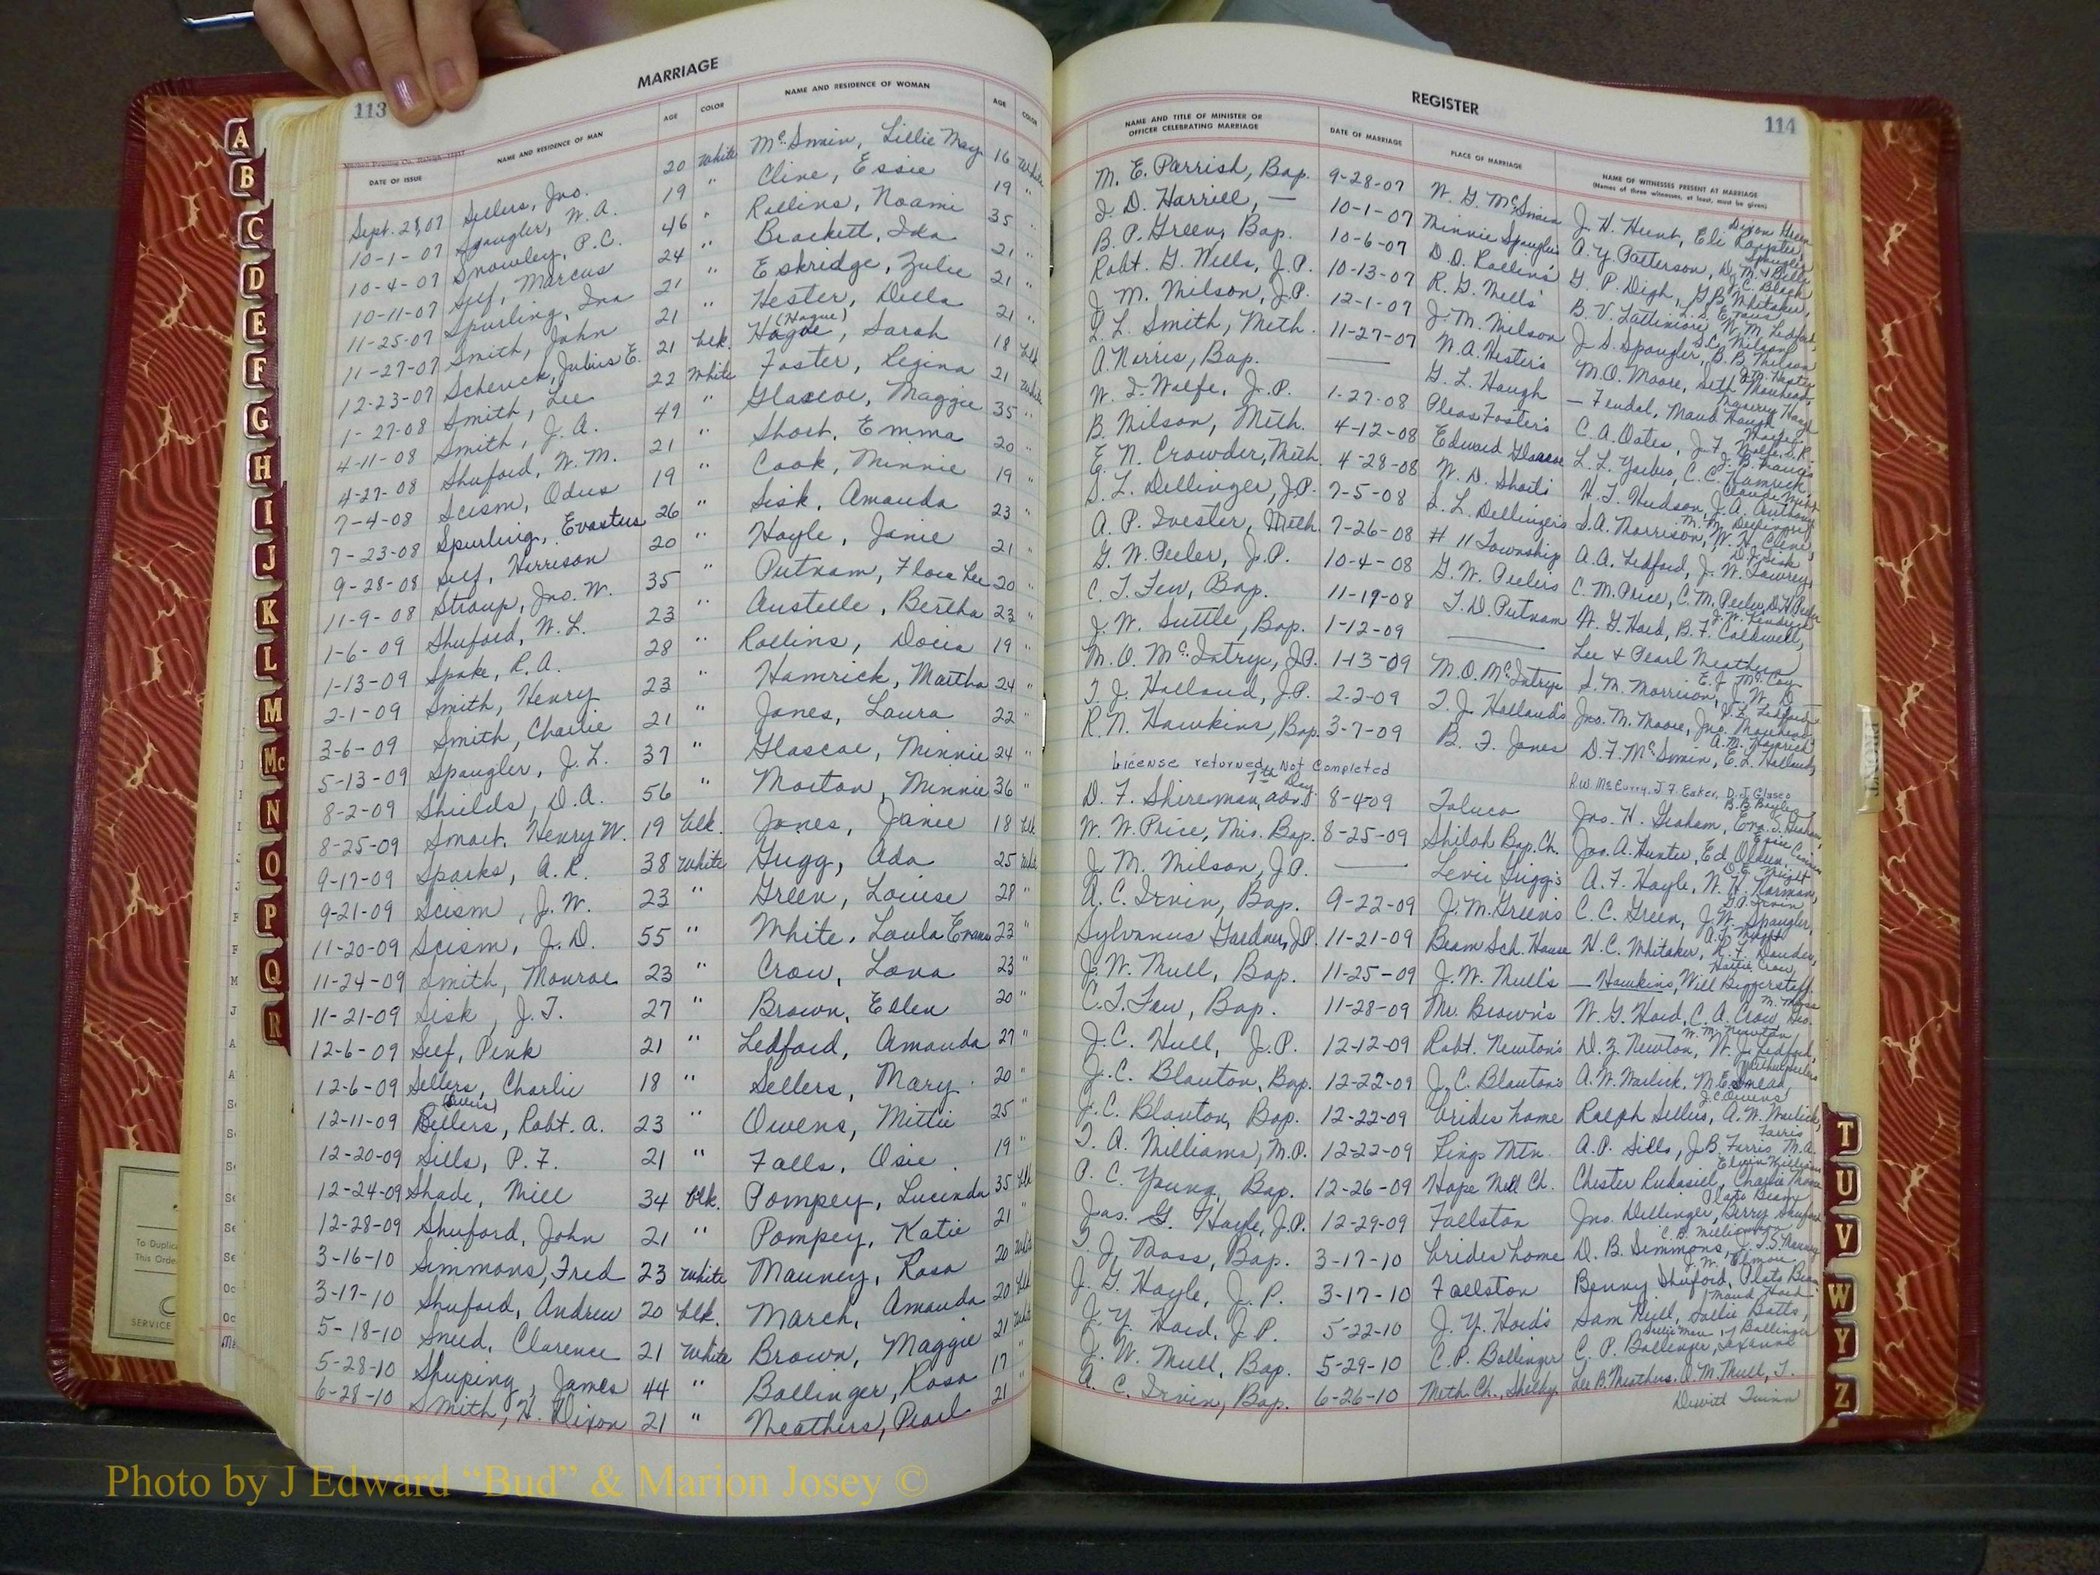 113
MARRIAGE
DATE OF ISSUE NAME AND RESIDENCE OF MAN AGE COLOR NAME AND RESIDENCE OF WOMAN AGE COLOR
Sept. 28, 07 Sellers, Jno. 20 White McSwain, Lillie May 16 White
10-1-07 Spangler, W. A. 19 " Cline, Essie 19 "
10-4-07 Snowley, P. C. 46 " Rollins, Noami 35 "
10-11-07 Self, Marcus 24 " Brackett, Ida 21 "
11-25-07 Spurling, Ina 21 " Eskridge, Zulie 21 "
11-27-07 Smith, John 21 " Hester, Della 21 "
12-23-07 Schenck, Julius E. 21 blk. Hogue, (Hague) Sarah 18 blk
1-27-08 Smith, Lee 22 White Foster, Regina 21 White
4-11-08 Smith, J. A. 49 " Glascoe, Maggie 35 "
4-27-08 Shuford, W. M. 21 " Short, Emma 20 "
7-4-08 Scism, Odus 19 " Cook, Minnie 19 "
7-23-08 Spurling, Evastus 26 " Sisk, Amanda 23 "
9-28-08 Self, Harrison 20 " Hoyle, Janie 21 "
11-9-08 Stroup, Jno. W. 35 " Putnam, Flora Lee 20 "
1-6-09 Shuford, W. L. 23 " Austelle, Bertha 23 "
1-13-09 Spake, R. A. 28 " Rollins, Docia 19 "
2-1-09 Smith, Henry 23 " Hamrick, Martha 24 "
3-6-09 Smith, Charlie 21 " Jones, Laura 22 "
5-13-09 Spangler, J. L. 37 " Glascoe, Minnie 24 "
8-2-09 Shields, D. A. 56 " Morton, Minnie 36 "
8-25-09 Smart, Henry W. 19 blk. Jones, Janie 18 blk
9-17-09 Sparks, A. R. 38 White Gugg, Ada 25 White
9-21-09 Scism, J. W. 23 " Green, Louise 28 "
11-20-09 Scism, J. D. 55 " White, Laula Evans 23 "
11-24-09 Smith, Monroe 23 " Crow, Lona 23 "
11-21-09 Sisk, J. T. 27 " Brown, Ellen 20 "
12-6-09 Self, Pink 21 " Ledford, Amanda 27 "
12-6-09 Sellers, Charlie 18 " Sellers, Mary 20 "
12-11-09 Bellers, Robt. A. 23 " Owens, Mittie 25 "
12-20-09 Sills, P. F. 21 " Falls, Osie 19 "
12-24-09 Shade, Will 34 blk. Pompey, Lucinda 35 blk
12-28-09 Shuford, John 21 " Pompey, Katie 21 "
3-16-10 Simmons, Fred 23 White Mauney, Rosa 20 White
3-17-10 Shuford, Andrew 20 blk. March, Amanda 20 blk
5-18-10 Sneed, Clarence 21 White Brown, Maggie 21 White
5-28-10 Shuping, James 44 " Bollinger, Rosa 17 "
6-28-10 Smith, H. Dixon 21 " Weathers, Pearl 21 "
REGISTER
114
NAME AND TITLE OF MINISTER OR OFFICER CELEBRATING MARRIAGE DATE OF MARRIAGE PLACE OF MARRIAGE NAME OF WITNESSES PRESENT AT MARRIAGE
(Names of three witnesses, at least, must be given)
M. E. Parrish, Bap. 9-28-07 W. G. McSwain J. H. Hunt, Eli Royster, Dixon Green
I. D. Harrill, — 10-1-07 Minnie Spangler's A. Y. Patterson, Spangler
B. P. Green, Bap. 10-6-07 D. D. Rollins G. P. Digh, G. B. Whitaker, J. C. Black
Robt. G. Wells, J. P. 10-13-07 R. G. Wells' B. V. Lattimore, W. M. Ledford,
J. M. Wilson, J. P. 12-1-07 J. M. Wilson J. S. Spangler, B. B. Wilson
L. L. Smith, Meth. 11-27-07 W. A. Hester's M. O. Moore, Seth Morehead
A. Norris, Bap. — G. L. Hough — Fendal, Maud Hough
W. I. Wolfe, J. P. 1-27-08 Pleas Foster's C. A. Oates, J. F. Wolfe
B. Wilson, Meth. 4-12-08 Edward Glascoe L. L. Yarbro, C. C. Hamrick
E. N. Crowder, Meth. 4-28-08 W. D. Short's H. T. Hudson, J. A. Anthony
S. L. Dellinger, J. P. 7-5-08 S. L. Dellinger's S. A. Morrison, W. H. Cline,
A. P. Ivester, Meth. 7-26-08 # 11 Township A. A. Ledford, J. W. Lowrey, D. J. Sisk
G. W. Peeler, J. P. 10-4-08 G. W. Peelers C. M. Price, C. M. Peeler, D. H. Peeler
C. T. Tew, Bap. 11-19-08 T. D. Putnam W. G. Hord, B. F. Caldwell,
J. W. Suttle, Bap. 1-12-09 — Lee & Pearl Weathers
M. O. McIntrye, J. P. 1-13-09 M. O. McIntrye S. M. Morrison, J. W. D — E. J. McCoy
T. J. Holland, J. P. 2-2-09 T. J. Holland's Jno. M. Moore, Jno. Morehead,
R. N. Hawkins, Bap. 3-7-09 B. F. Jones D. F. McSwain, E. L. Holland, A. M. Hamrick
License returned, Not Completed
R. W. McCurry, J. F. Eaker, D. J. Glasco
D. F. Shireman, 7th Day Adv. 8-4-09 Toluca Jno. H. Graham, Eva J. Graham,
W. W. Price, Mis. Bap. 8-25-09 Shiloh Bap. Ch. Jas. A. Hunter, Ed Odum,
J. M. Wilson, J. P. — Levie Grigg's A. F. Hoyle, W. H. Norman, D. C. Wright
A. C. Irvin, Bap. 9-22-09 J. M. Green's C. C. Green, J. W. Spangler, G. A. Irvin
Sylvanus Gardner, J. P. 11-21-09 Beam Sch. House H. C. Whitaker,
J. W. Mull, Bap. 11-25-09 J. W. Mull's — Hawkins, Will Biggerstaff Hattie Crow
C. T. Tew, Bap. 11-28-09 Mr. Brown's W. G. Hord, C. A. Crow, Geo. M. Moss
J. C. Hull, J. P. 12-12-09 Robt. Newton's D. Z. Newton, W. J. Ledford, W. M. Newton
J. C. Blanton, Bap. 12-22-09 J. C. Blanton's A. W. Warlick, M. E. Smeal,
J. C. Blanton, Bap. 12-22-09 brides home Ralph Sellers, A. W. Warlick, J. C. Owens
T. A. Williams, M. P. 12-22-09 Kings Mtn. A. P. Sills, J. B. Farris, M. A. Farris
P. C. Young, Bap. 12-26-09 Hope Mill Ch. Chester Rudasiel, Charlie Moore
Jas. G. Hoyle, J. P. 12-29-09 Fallston Jno. Dellinger, Berry Shuford Plato Beam
T. J. Moss, Bap. 3-17-10 brides home D. B. Simmons, J. S. Mauney
J. G. Hoyle, J. P. 3-17-10 Fallston Benny Shuford, Plato Beam
J. Y. Hord, J. P. 5-22-10 J. Y. Hord's Sam Hull, Sallie Batts, Maud Hord
J. W. Mull, Bap. 5-29-10 C. P. Bollinger C. P. Bollinger,
A. C. Irvin, Bap. 6-26-10 Meth. Ch., Shelby Lee B. Weathers, O. M. Mull, T.
Dewitt Quinn
A
B
C
D
E
F
G
H
I
J
K
L
M
Mc
N
O
P
Q
R
T
U
V
W
Y
Z
FRONT
To Duplic
This Orde
SERVICE
Photo by J Edward “Bud” & Marion Josey ©